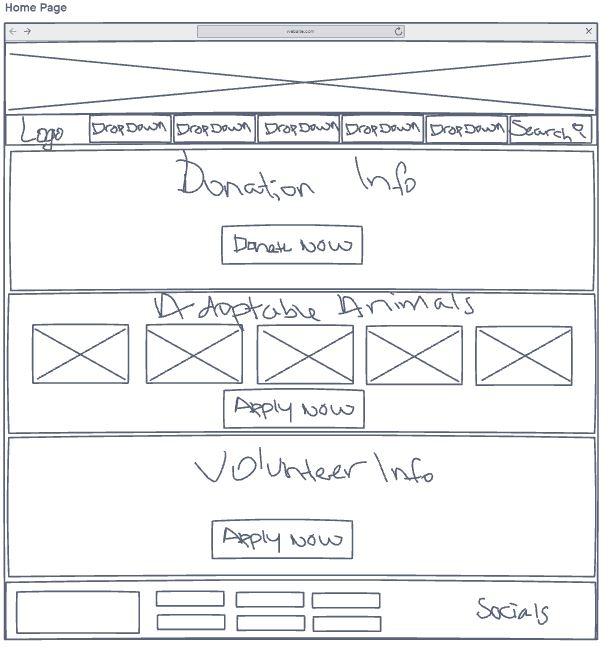 Home Page
website.com
Logo DropDown DropDown DropDown DropDown DropDown Search
Donation Info
Donate Now
Adoptable Animals
Apply Now
Volunteer Info
Apply Now
Socials